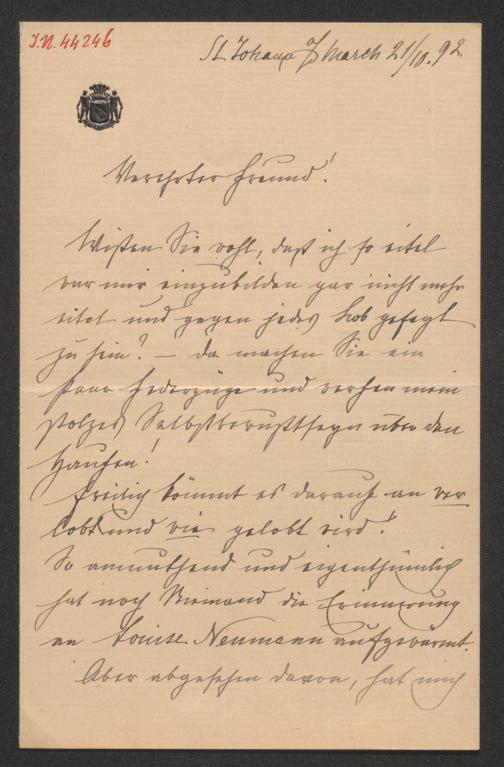 I.N. 44246
St Johann a/d March 21/10. 92.
Verehrter Freund!
Wißen Sie wohl, daß ich so eitel
war mir einzubilden gar nicht mehr
eitel und gegen jedes Lob gefeyt
zu sein? – da machen Sie ein
paar Federzüge und werfen mein
stolzes Selbstbewußtseyn über den
Haufen!
Freilich kömmt es darauf an wer
lobt und wie gelobt wird!
So anmuthend und eigenthümlich
hat noch Niemand die Erinnerung
an Louise Neumann aufgewärmt.
Aber abgesehen davon, hat mich